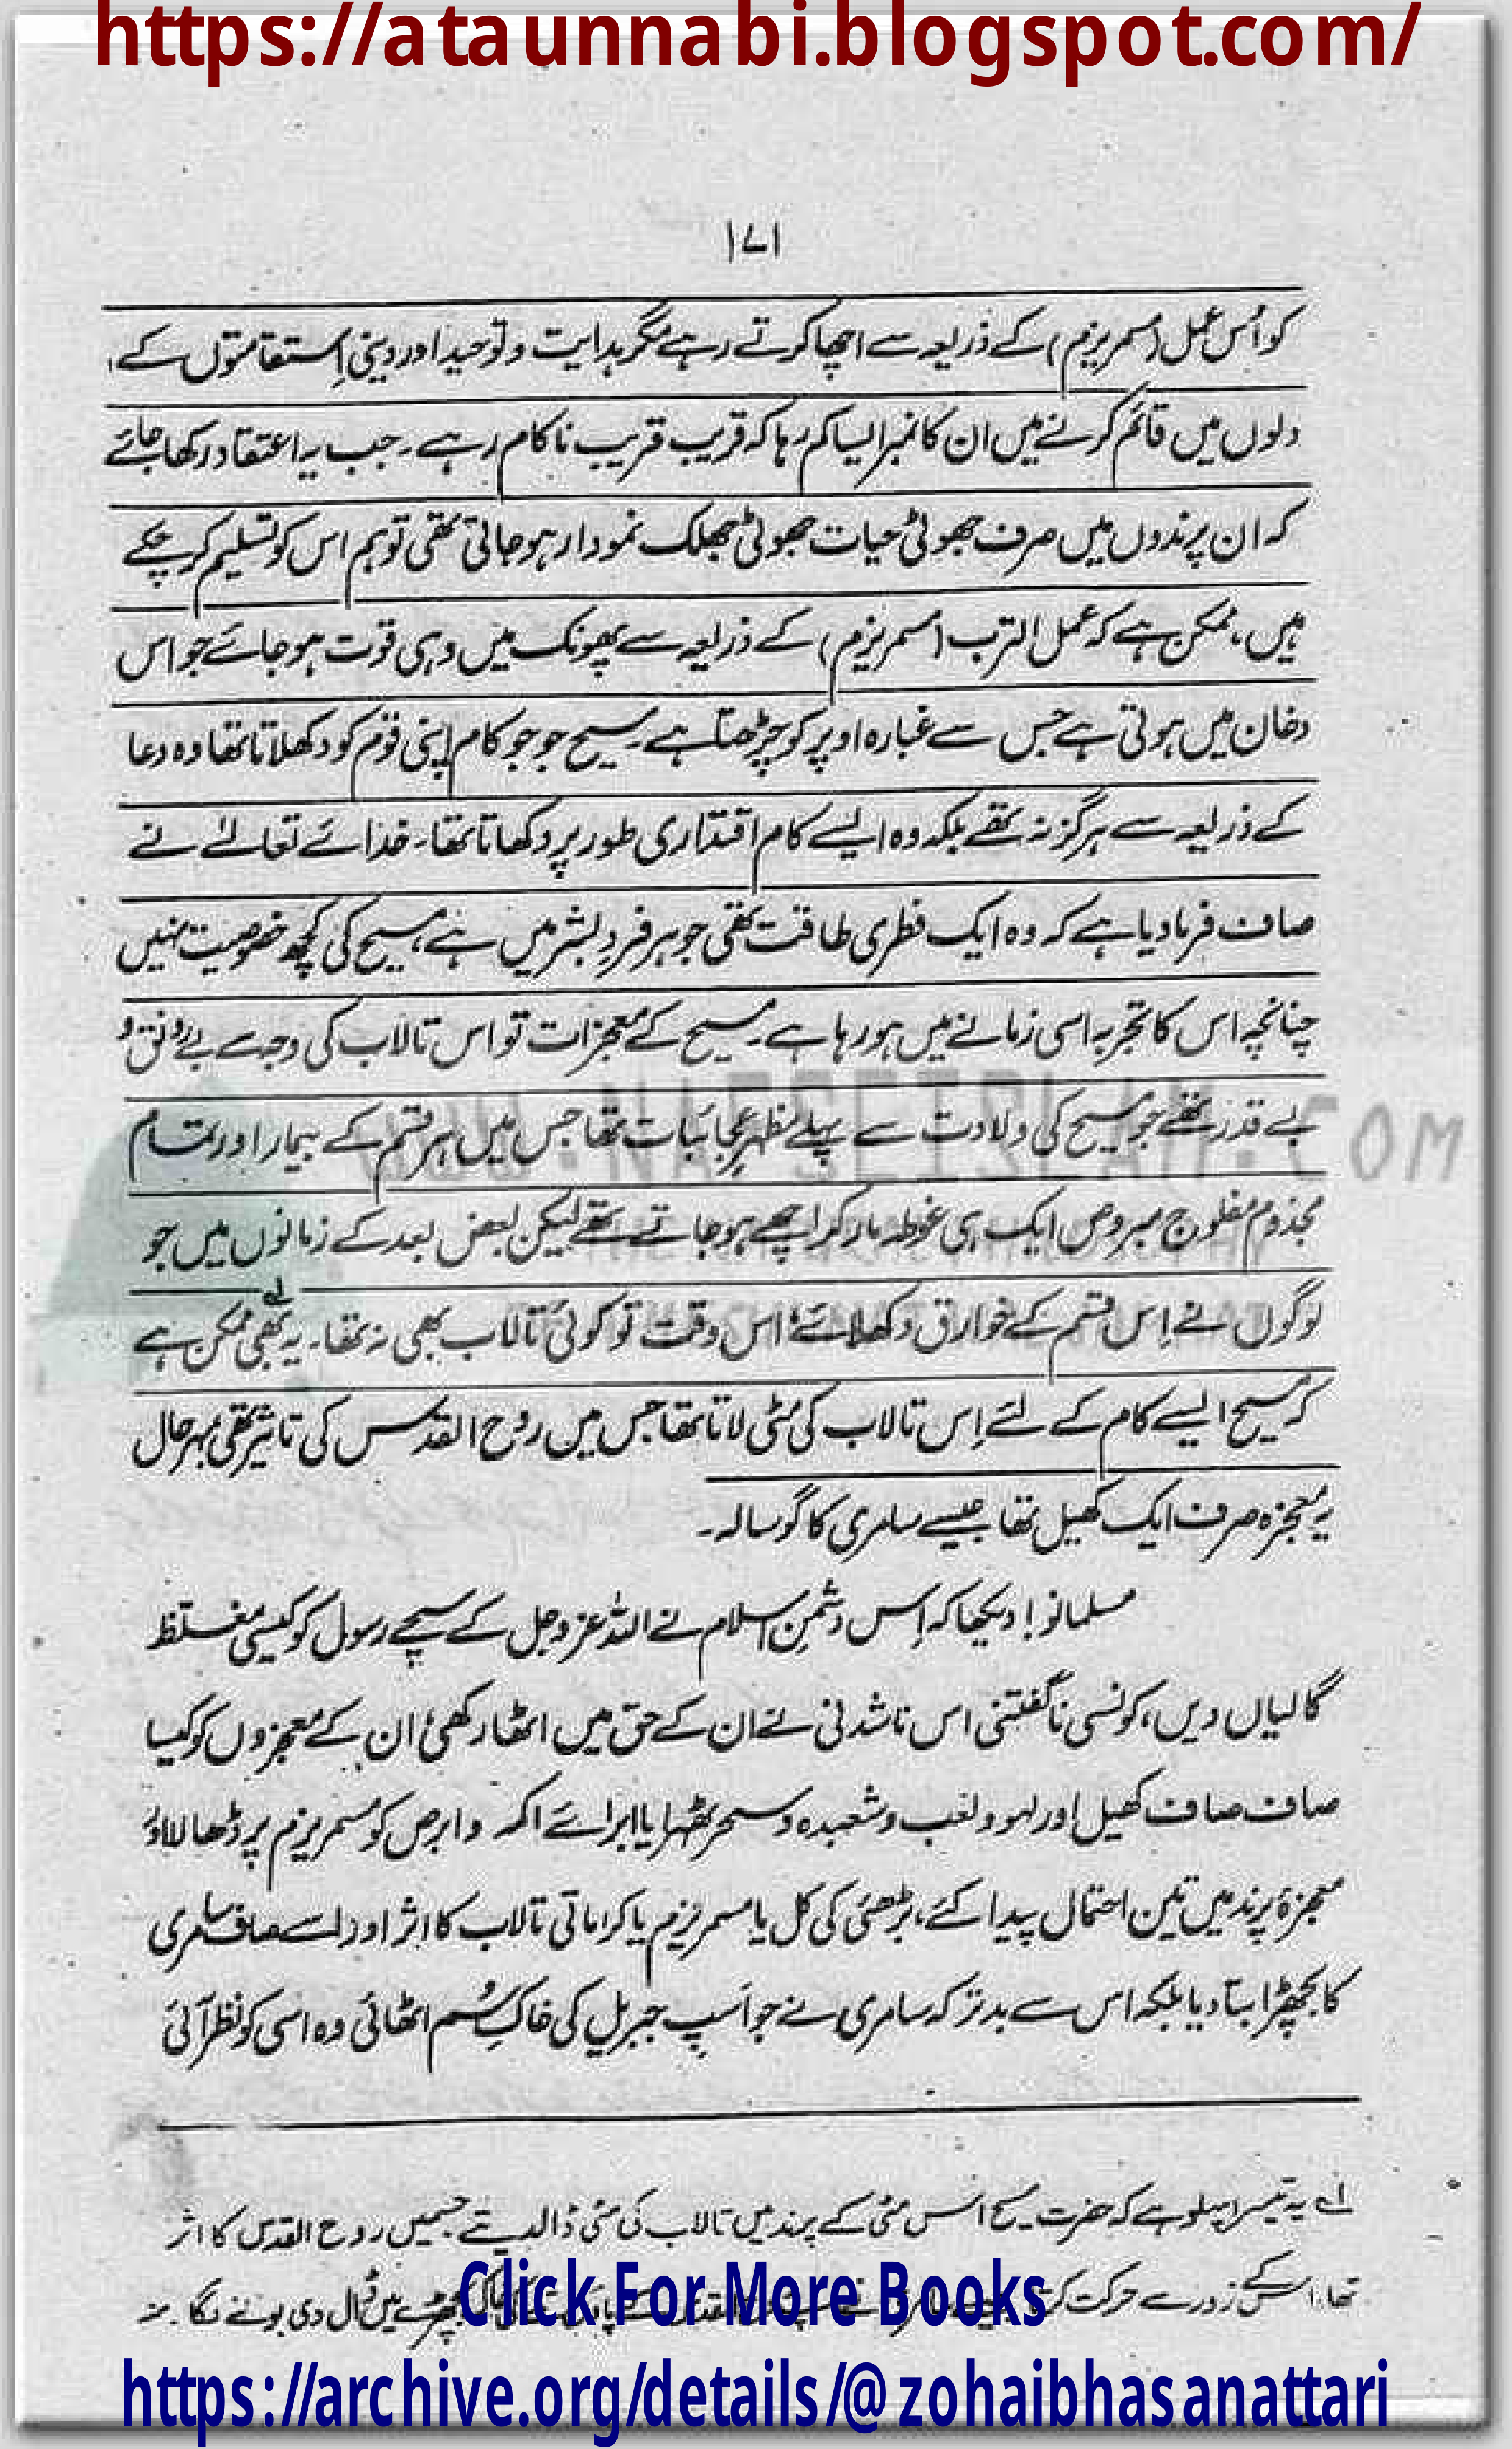 https://ataunnabi.blogspot.com/
۱۷۱
کو اُس عمل (مسمریزم) کے ذریعہ سے اچھا کرتے رہے مگر ہدایت و توحید اور دینی اِستقامتوں کے
دلوں میں قائم کرنے میں ان کا نمبر ایسا کم رہا کہ قریب قریب ناکام رہے ۔ جب یہ اعتقاد رکھا جائے
کہ ان پرندوں میں صرف جھوٹی حیات جھوٹی جھلک نمودار ہو جاتی تھی تو ہم اس کو تسلیم کر چکے
ہیں، ممکن ہے کہ عمل الترب (مسمریزم) کے ذریعہ سے پھونک میں وہی قوت ہو جائے جو اس
دخان میں ہوتی ہے جس سے غبارہ اوپر کو چڑھتا ہے۔ مسیح جو جو کام اپنی قوم کو دکھلاتا تھا وہ دعا
کے ذریعہ سے ہرگز نہ تھے بلکہ وہ ایسے کام اقتداری طور پر دکھاتا تھا۔ خدائے تعالےٰ نے
صاف فرما دیا ہے کہ وہ ایک فطری طاقت تھی جو ہر فردِ بشر میں ہے، مسیح کی کچھ خصوصیت نہیں
چنانچہ اس کا تجربہ اسی زمانے میں ہو رہا ہے۔ مسیح کے معجزات تو اس تالاب کی وجہ سے بے رونق و
بے قدر تھے جو مسیح کی ولادت سے پہلے مظہرِ عجائبات تھا جس میں ہر قسم کے بیمار اور تمام
مجذوم مفلوج مبروص ایک ہی غوطہ مار کر اچھے ہو جاتے تھے لیکن بعض بعد کے زمانوں میں جو
لوگوں نے اِس قسم کے خوارق دکھلائے اُس وقت تو کوئی تالاب بھی نہ تھا۔ یہ بھی ممکن ہے
کہ مسیح ایسے کام کے لئے اِس تالاب کی مٹی لاتا تھا جس میں روح القدس کی تاثیر تھی بہرحال
یہ معجزہ صرف ایک کھیل تھا جیسے سامری کا گوسالہ۔
مسلمانو! دیکھا کہ اِس دشمنِ اسلام نے اللہ عزوجل کے سچے رسول کو کیسی مغلظ
گالیاں دیں، کونسی ناگفتنی اس ناشدنی نے ان کے حق میں اٹھا رکھی، ان کے معجزوں کو کیسا
صاف صاف کھیل اور لہو و لعب و شعبدہ و سحر ٹھہرایا ابرائے اکمہ و ابرص کو مسمریزم پر ڈھالا اور
معجزۂ پرند میں تین احتمال پیدا کئے، بڑھئی کی کل یا مسمریزم یا کراماتی تالاب کا اثر اور اسے صاف سامری
کا بچھڑا بتا دیا بلکہ اس سے بدتر کہ سامری نے جو اَسپِ جبریل کی خاکِ سُم اٹھائی وہ اسی کو نظر آئی
لے یہ تیسرا پہلو ہے کہ حضرت مسیح اس مٹی کے پرند میں تالاب کی مٹی ڈال دیتے جسمیں روح القدس کا اثر
تھا، اسکے زور سے حرکت کرتا بچھڑے میں ڈال دی بولنے لگا ۔ منہ
Click For More Books
https://archive.org/details/@zohaibhasanattari
WWW.NAFSEISLAM.COM